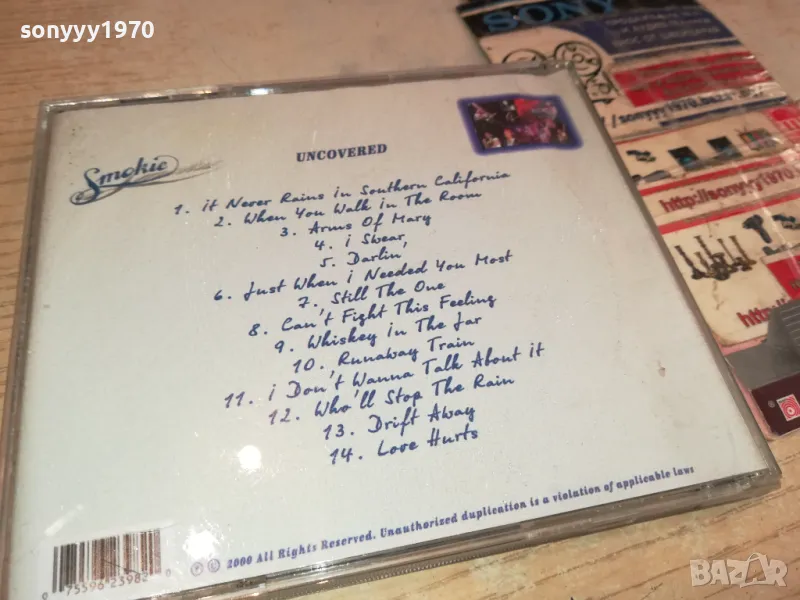 sonyyy1970
SONY
Smokie
UNCOVERED
1. it Never Rains in Southern California
2. When You Walk in The Room
3. Arms Of Mary
4. i Swear
5. Darlin'
6. Just When i Needed You Most
7. Still The One
8. Can't Fight This Feeling
9. Whiskey in The Jar
10. Runaway Train
11. i Don't Wanna Talk About it
12. Who'll Stop The Rain
13. Drift Away
14. Love Hurts
℗ © 2000 All Rights Reserved. Unauthorized duplication is a violation of applicable laws
0 75596 23982 0
http://sonyyy1970.
BAZAR